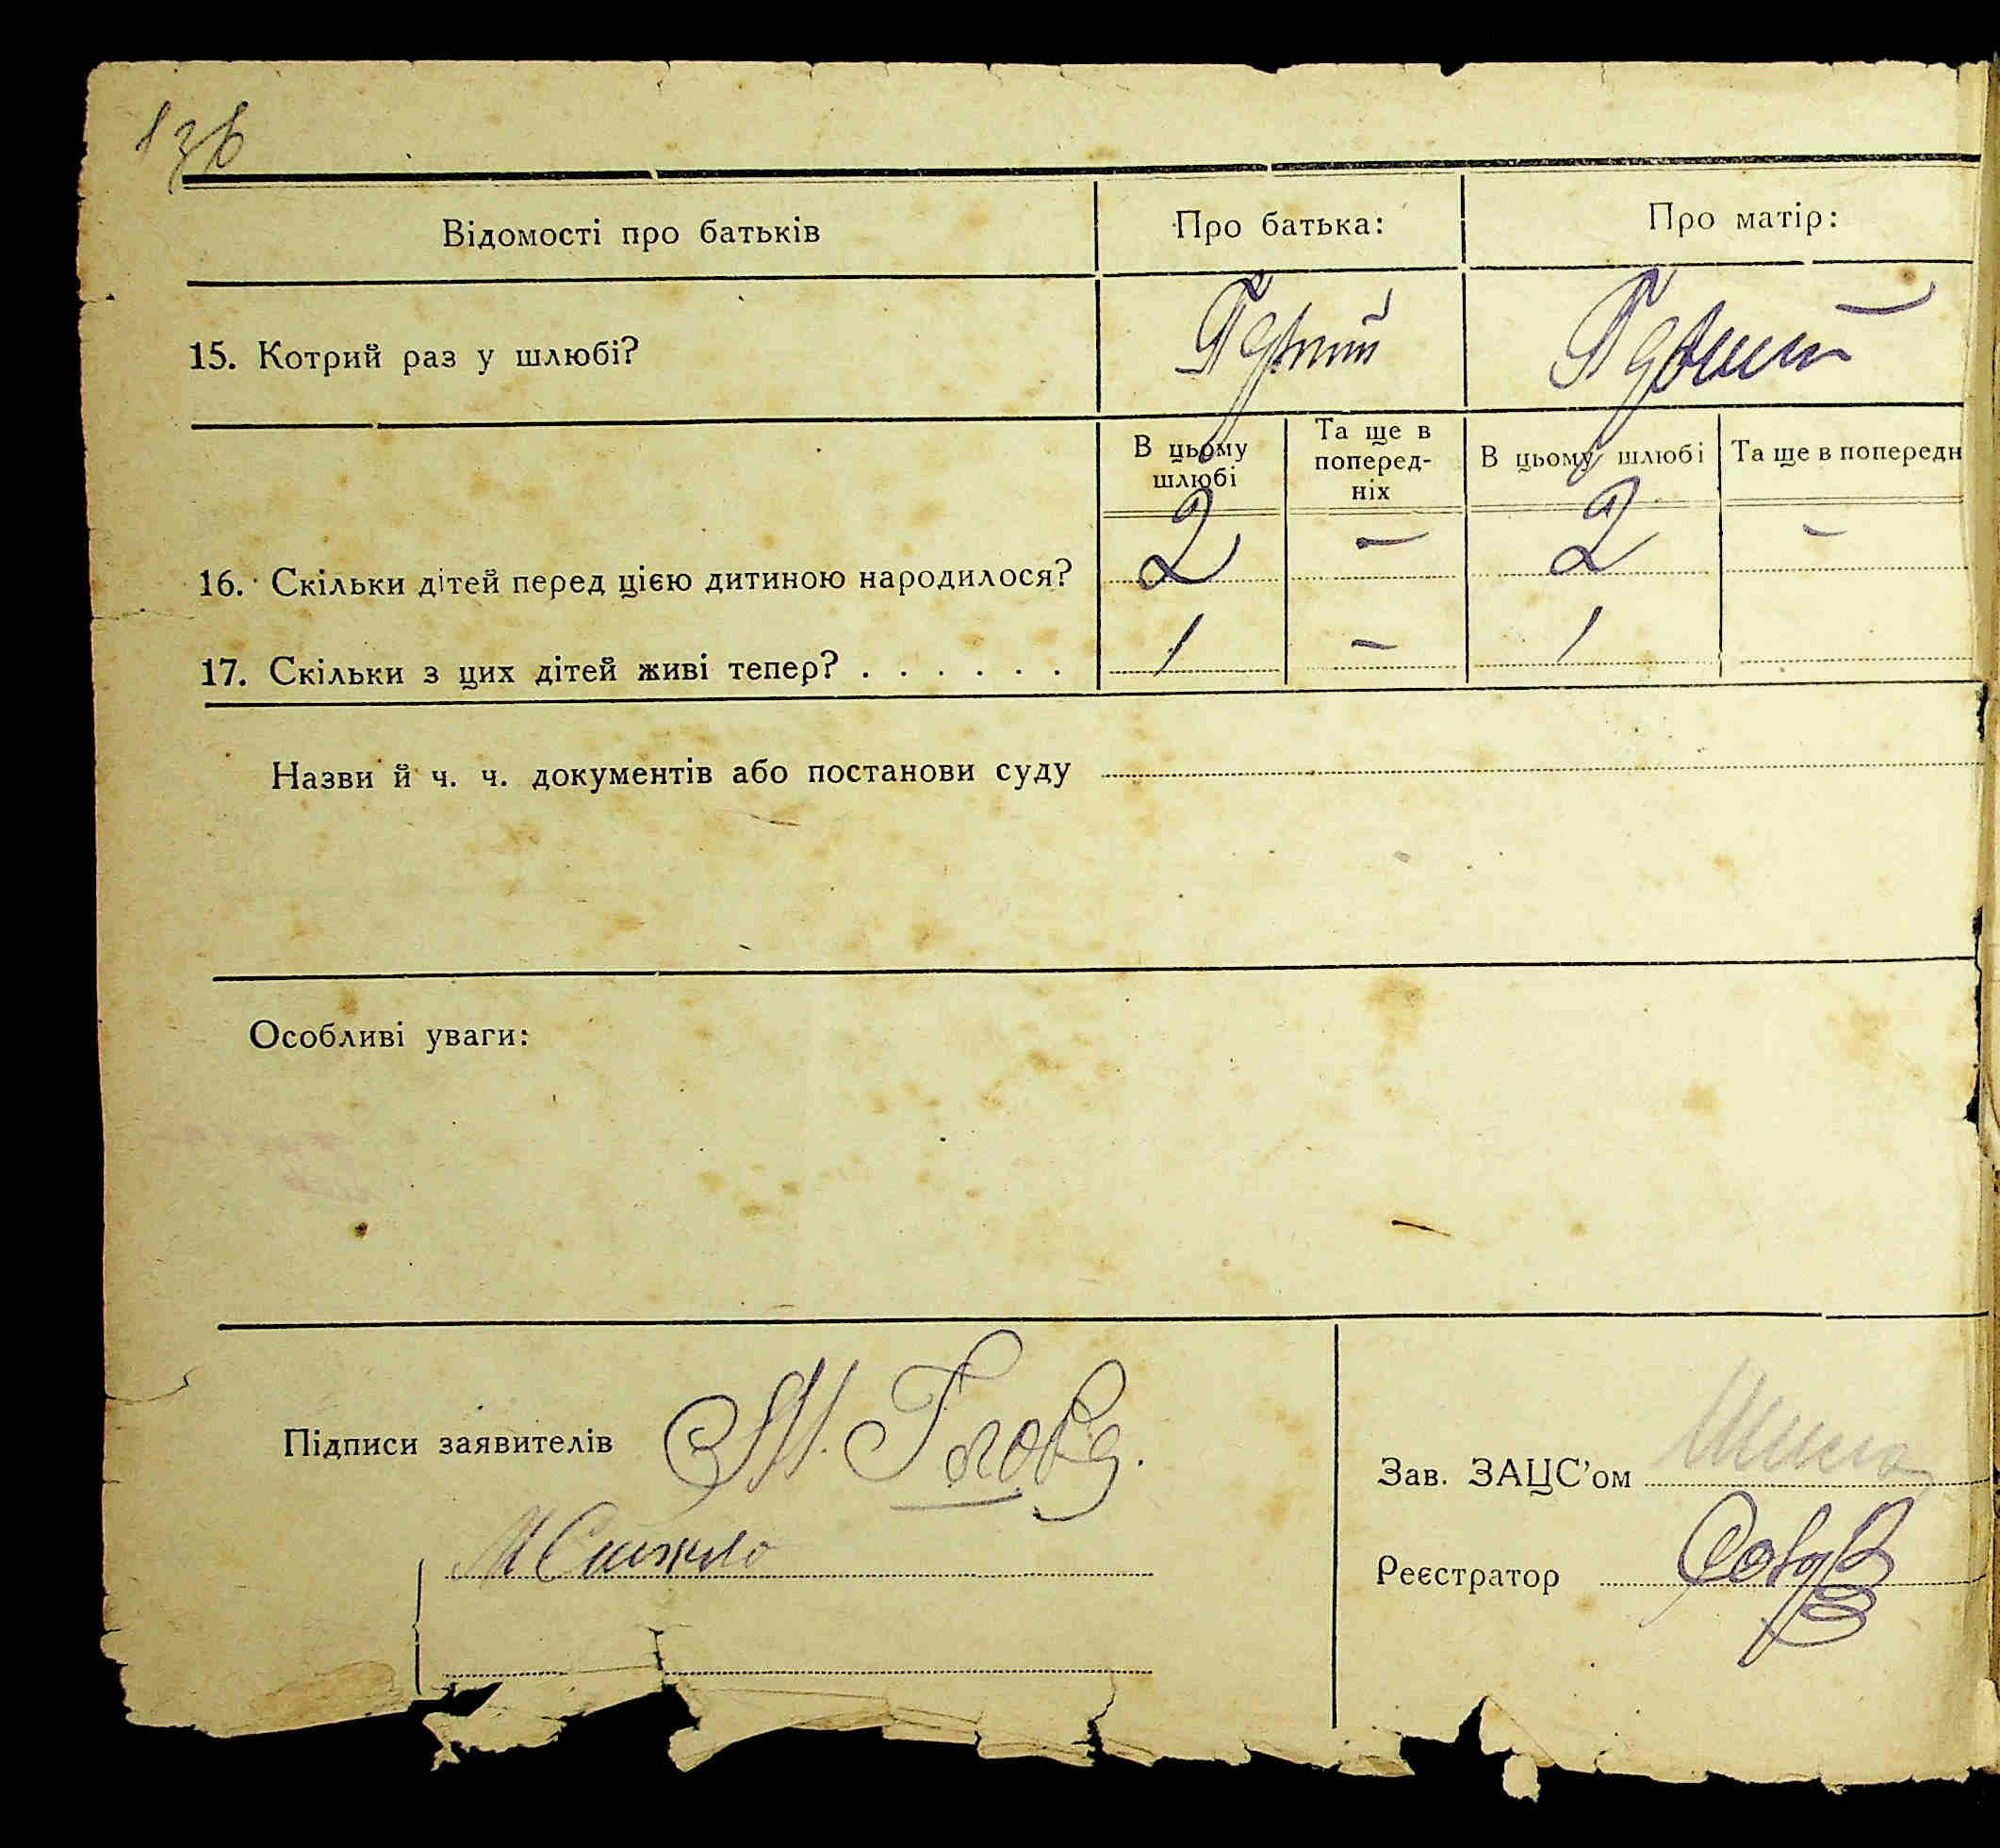 Відомості про батьків Про батька: Про матір:
15. Котрий раз у шлюбі? Первий Первий
В цьому шлюбі Та ще в поперед-ніх В цьому шлюбі Та ще в попередн
16. Скільки дітей перед цією дитиною народилося? 2 – 2 –
17. Скільки з цих дітей живі тепер? . . . . . . 1 – 1
Назви й ч. ч. документів або постанови суду
Особливі уваги:
Підписи заявителів
Зав. ЗАЦС'ом
Реєстратор